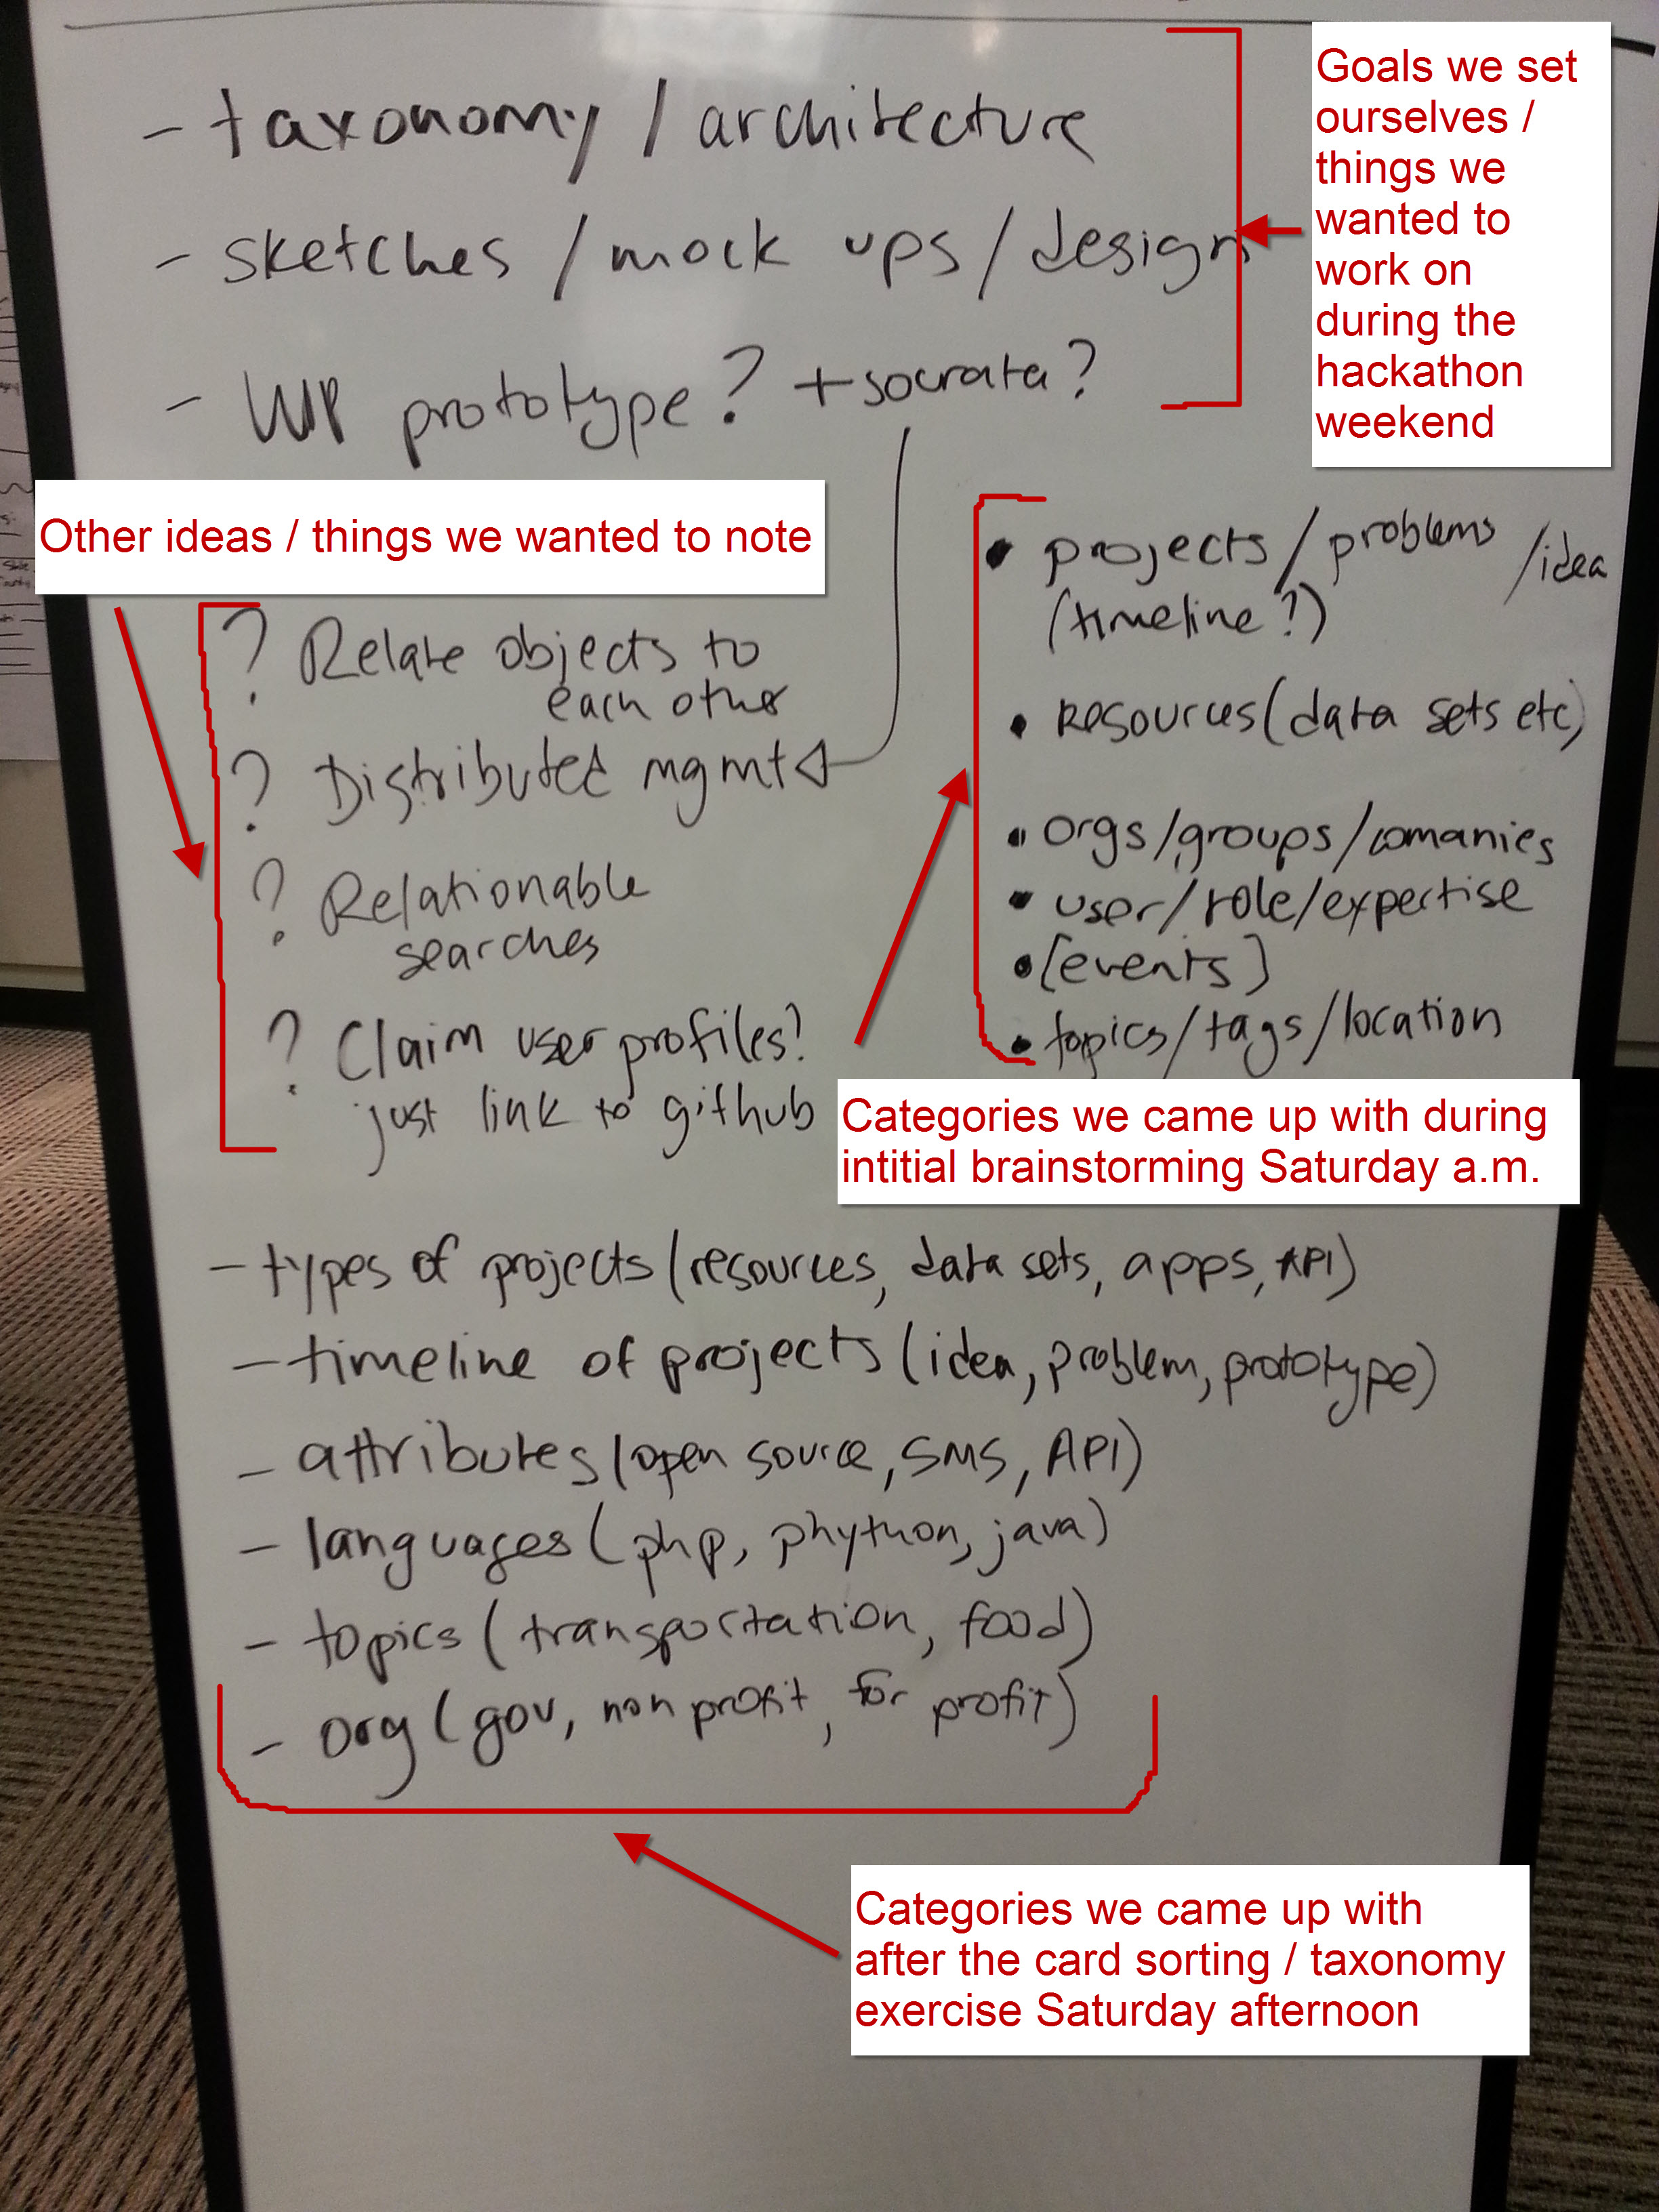 - taxonomy / architecture
- sketches / mock ups / design
- WP prototype? + socrata?
Goals we set
ourselves /
things we
wanted to
work on
during the
hackathon
weekend
Other ideas / things we wanted to note
? Relate objects to
each other
? Distributed mgmt
? Relationable
searches
? Claim user profiles?
just link to github
• projects / problems / idea
(timeline?)
• resources (data sets etc)
• orgs/groups/comanies
• user/role/expertise
• [events]
• topics/tags/location
Categories we came up with during
intitial brainstorming Saturday a.m.
- types of projects (resources, data sets, apps, API)
- timeline of projects (idea, problem, prototype)
- attributes (open source, SMS, API)
- languages (php, phython, java)
- topics (transportation, food)
- org (gov, non profit, for profit)
Categories we came up with
after the card sorting / taxonomy
exercise Saturday afternoon